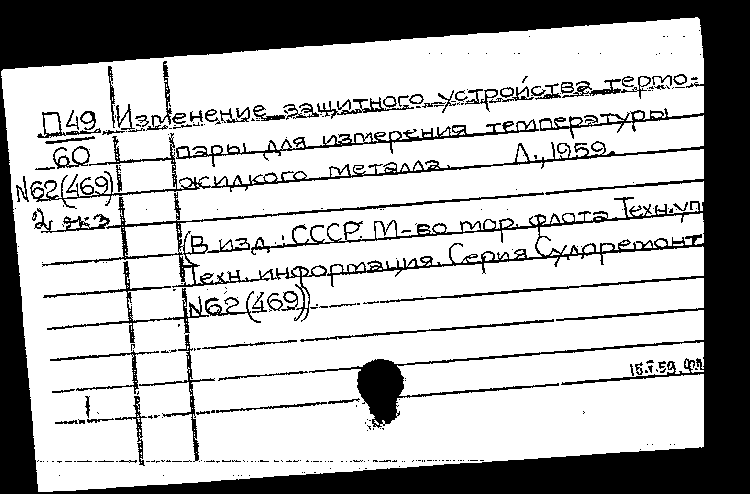 П49 Изменение защитного устройства термо-
60 пары для измерения температуры
N62(469) жидкого металла. Л., 1959.
2 экз
(В изд.: СССР. М-во мор. флота. Техн. упр
Техн. информация. Серия Судоремонт
N62 (469))
15.V.59.
1